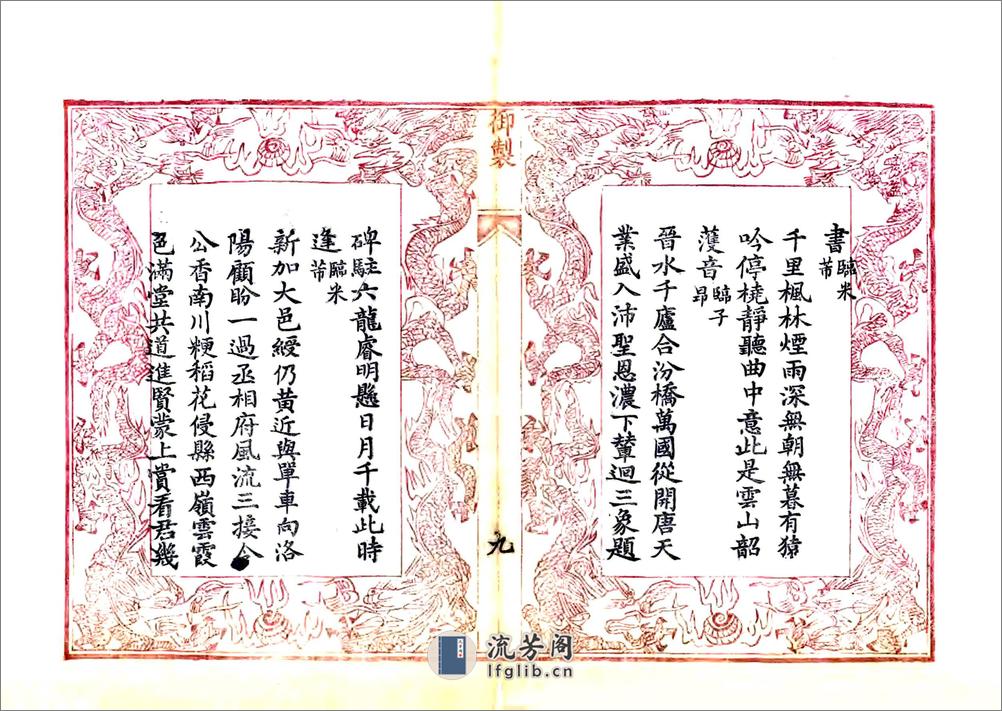 書臨米芾
千里楓林煙雨深無朝無暮有猿
吟停橈靜聽曲中意此是雲山韶
濩音臨子昂
晉水千廬合汾橋萬國從開唐天
業盛入沛聖恩濃下輦迴三象題
御製
九
碑駐六龍睿明懸日月千載此時
逢臨米芾
新加大邑綬仍黃近與單車向洛
陽顧盼一過丞相府風流三接令
公香南川粳稻花侵縣西嶺雲霞
色滿堂共道進賢蒙上賞看君幾
流芳阁
lfglib.cn